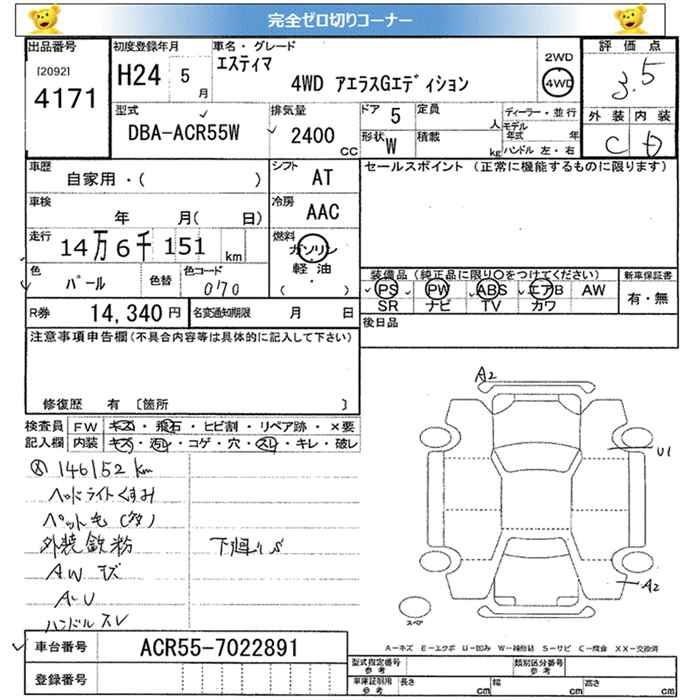 完全ゼロ切りコーナー
出品番号 初度登録年月 車名・グレード 2WD 評価点
[2092] H24 5 月 エスティマ 4WD 3.5
4171 4WD アエラスGエディション
型式 排気量 ドア 5 定員 人 ディーラー・並行 外装 内装
DBA-ACR55W 2400 CC 形状 W 積載 kg モデル年式 年 C D
ハンドル 左・右
車歴 シフト セールスポイント (正常に機能するものに限ります)
自家用・( ) AT
車検 冷房
年 月( 日) AAC
走行 燃料
14万6千151 km ガソリン
軽油
・
( )
色 色替 色コード 装備品(純正品に限り○をつけてください) 新車保証書
パール 070 PS PW ABS エアB AW 有・無
SR ナビ TV カワ
R券 14,340 円 名変通知期限 月 日 後日品
注意事項申告欄(不具合内容等は具体的に記入して下さい)
修復歴 有 〔箇所 〕
検査員 FW キズ・飛石・ヒビ割・リペア跡・×要
記入欄 内装 キズ・汚レ・コゲ・穴・スレ・キレ・破レ
146152 km
ヘッドライトくすみ
ペット毛
外装鉄粉 下廻りS
AWキズ
A・U
ハンドルスレ
A2
U1
A2
スペア
A－キズ E－エクボ U－凹み W－補修跡 S－サビ C－腐食 XX－交換済
車台番号 ACR55-7022891
登録番号
型式指定番号 参考 類別区分番号 参考
車庫証明用 参考 長さ cm 幅 cm 高さ cm